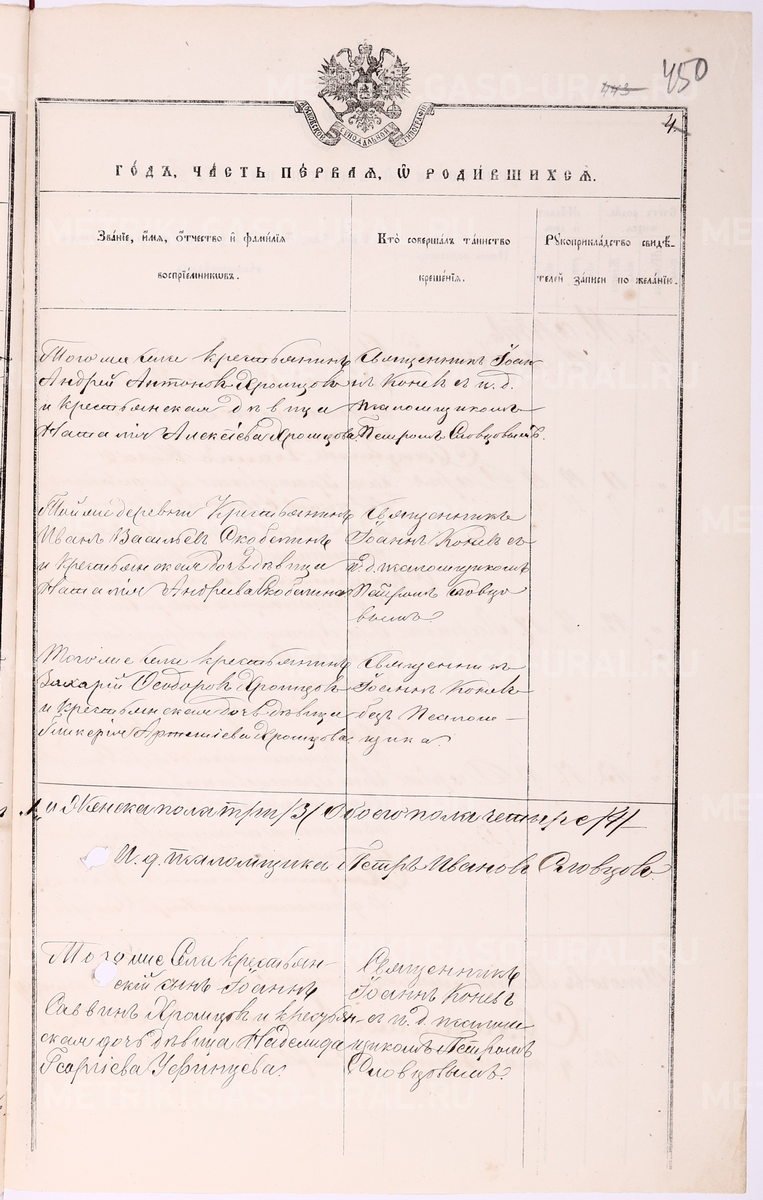 443 450
МОСКОВСКОЙ СѴНОДАЛЬНОЙ ТИПОГРАФІИ
4.
ГО́ДЪ, ЧА́СТЬ ПЕ́РВАЯ, Ѽ РОДИ́ВШИХСЯ.
Зва́нїе, и́мя, о́тчество и҆ фами́лїя
воспрїе́мниковъ.
Кто̀ соверша́лъ та́инство
креще́нїя.
Рꙋкоприкла́дство свидѣ́-
телей за́писи по жела́нїю.
Тогоже села крестьянинъ
Андрей Антоновъ Хромцовъ
и крестьянская дѣвица
Наталія Алексіева Хромцова
Священникъ Іоан
нъ Коневъ с и. д.
псаломщикомъ
Петромъ Словцовымъ.
Тойже деревни Крестьянинъ
Иванъ Васильевъ Скобелинъ
и крестьянская дочь дѣвица
Наталія Андреева Скобелина
Священникъ
Іоаннъ Коневъ съ
и. д. псаломщикомъ
Петромъ Словцо
вымъ
Тогоже села крестьянинъ
Захарій Ѳеодоровъ Хромцовъ
и крестьянская дочь дѣвица
Гликерія Артеміева Хромцова
Священникъ
Іоаннъ Коневъ
безъ Псалом-
щика.
1, и Женска пола три /3/ Обоего пола четыре /4/
И. д. псаломщика Петръ Ивановъ Словцовъ.
Тогоже Села крестьян-
скій сынъ Іоаннъ
Саввинъ Хромцовъ и крестьян-
ская дочь дѣвица Надежда
Георгіева Уфинцева.
Священникъ
Іоаннъ Коневъ
съ и. д. псалом
щикомъ Петромъ
Словцовымъ.
METRIKI.GASO-URAL.RU